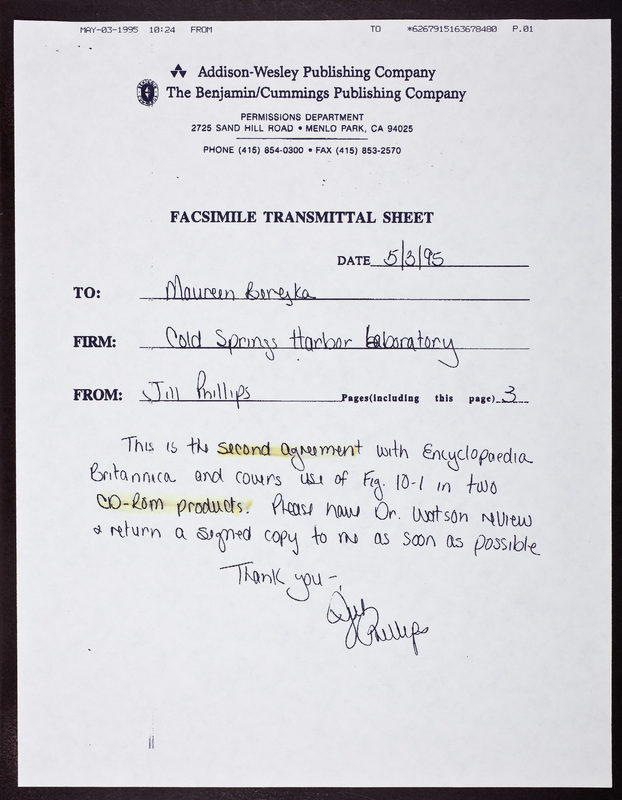 MAY-03-1995 10:24 FROM TO *6267915163678480 P.01
Addison-Wesley Publishing Company
The Benjamin/Cummings Publishing Company
PERMISSIONS DEPARTMENT
2725 SAND HILL ROAD • MENLO PARK, CA 94025
PHONE (415) 854-0300 • FAX (415) 853-2570
FACSIMILE TRANSMITTAL SHEET
DATE 5/3/95
TO: Maureen Berejka
FIRM: Cold Springs Harbor Laboratory
FROM: Jill Phillips Pages(including this page) 3
This is the second agreement with Encyclopaedia
Britannica and covers use of Fig. 10-1 in two
CD-Rom products. Please have Dr. Watson review
& return a signed copy to me as soon as possible
Thank you -
Jill
Phillips